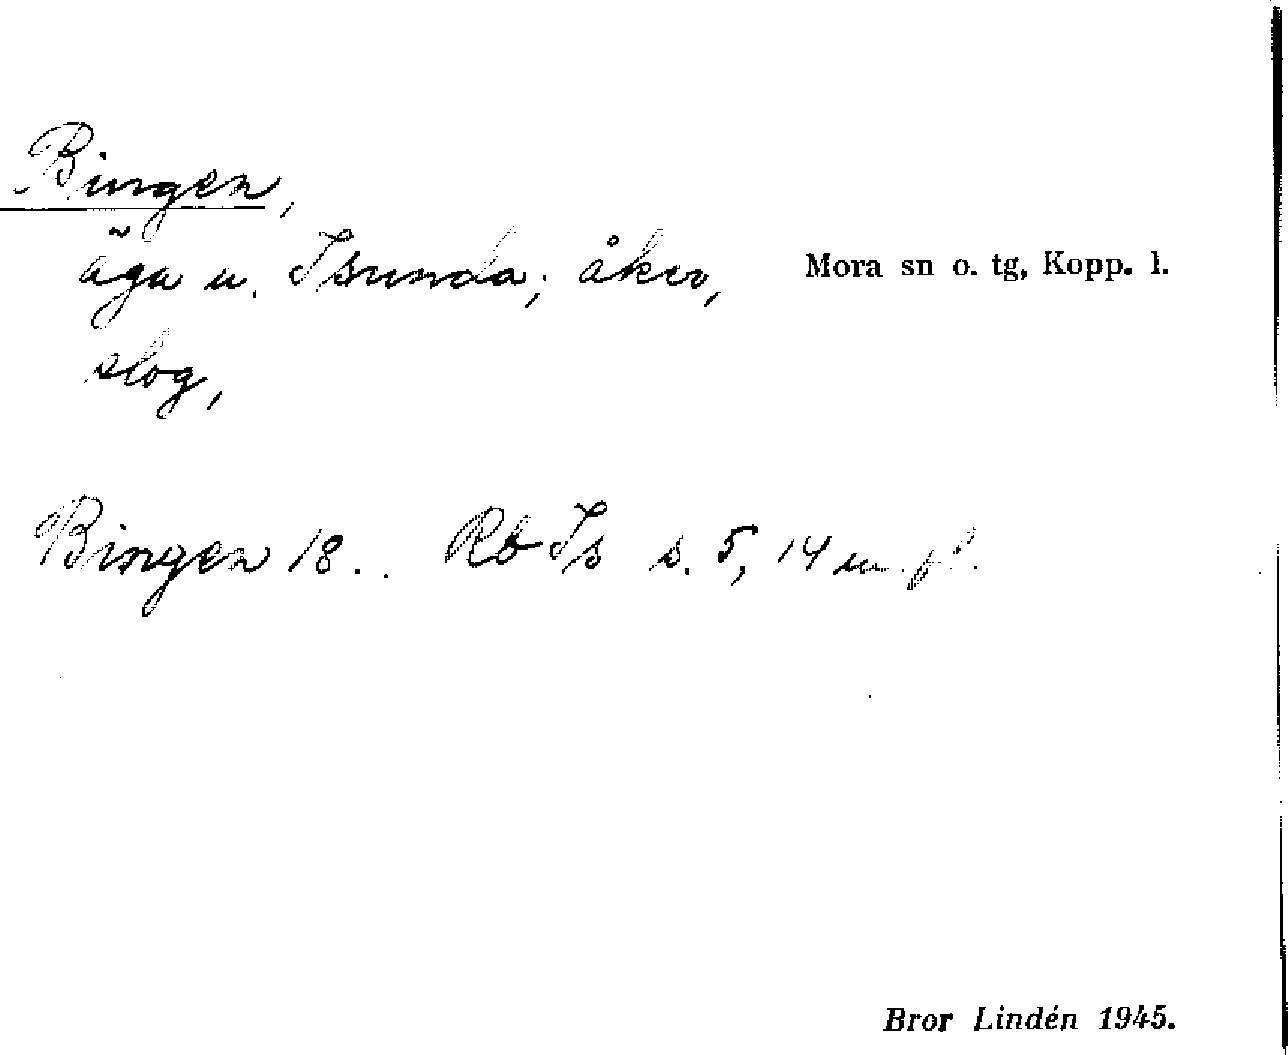 Bingen,
ägu u. Isunda; åker,
Mora sn o. tg, Kopp. l.
slog,
Bingen 18.. Rb Is s. 5, 14 m. fl.
Bror Lindén 1945.